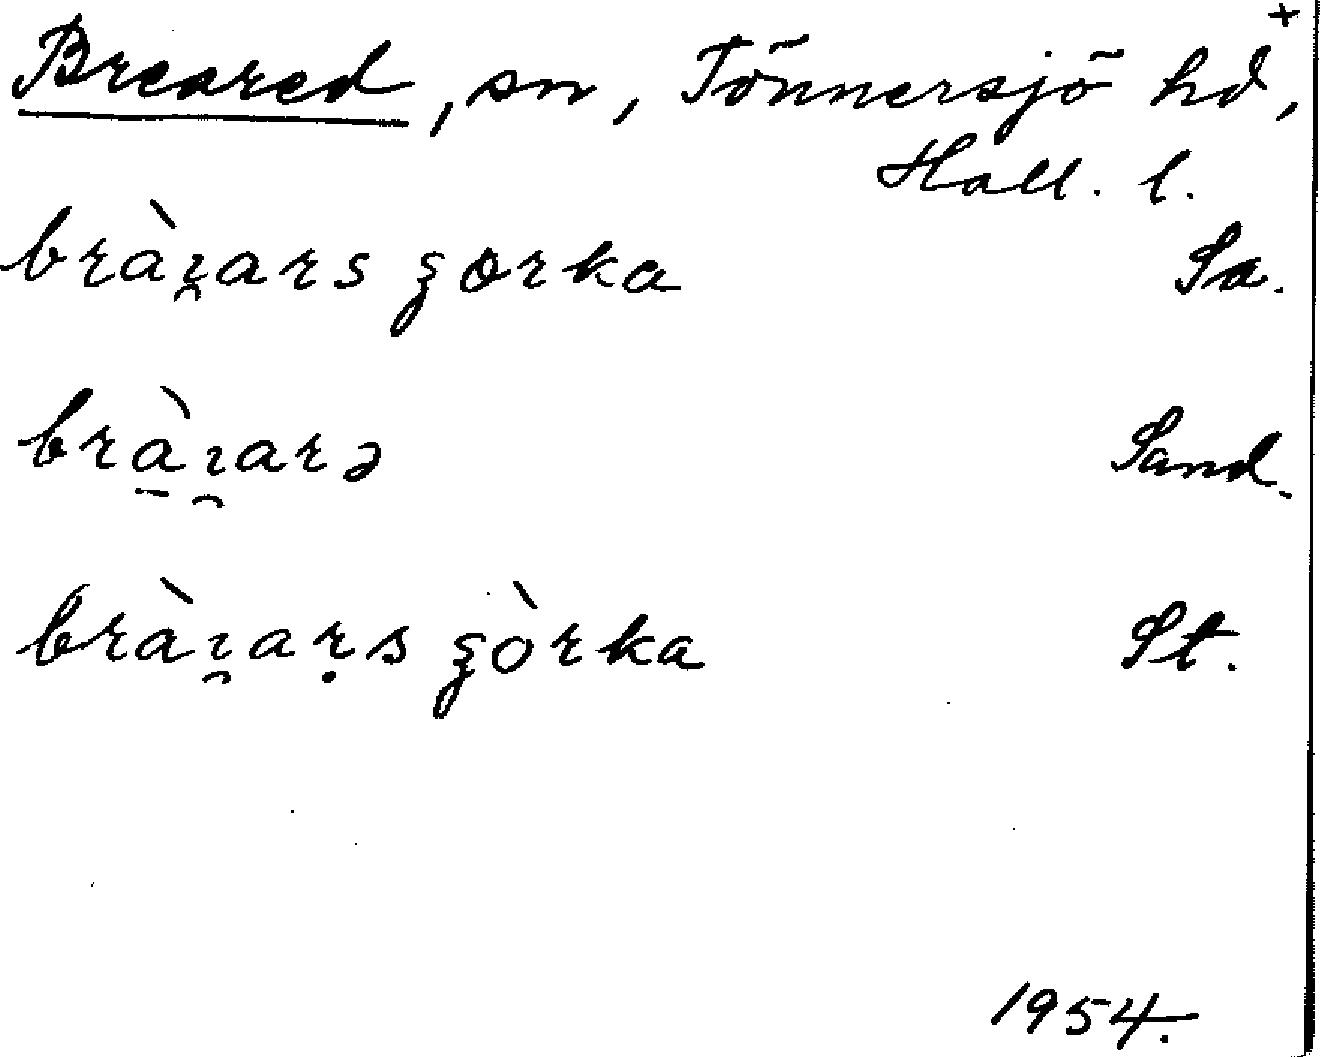 +
Breared, sn, Tönnersjö hd,
Hall. l.
bràɿ̯ars ʒorka Sa.
brà̱ɿ̯arə Sand.
bràɿ̯aṛs ʒòrka St.
1954.